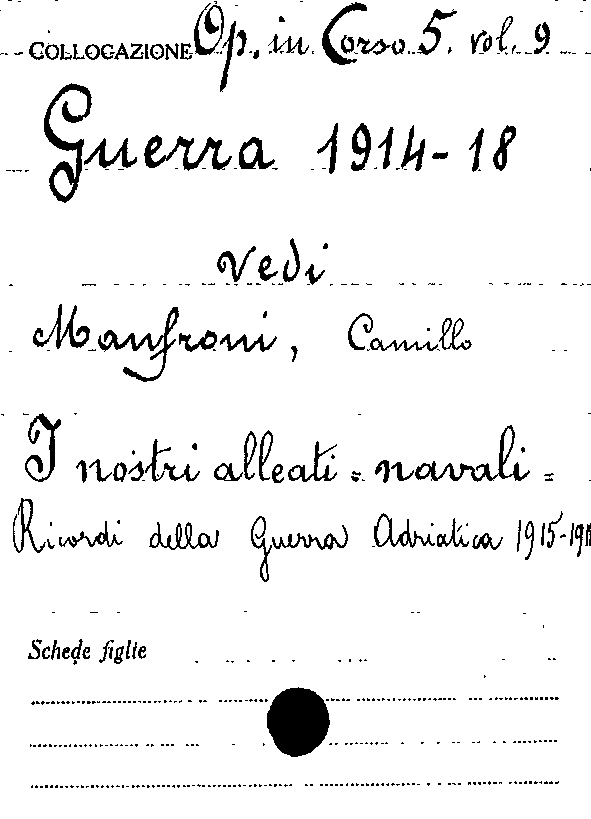 COLLOCAZIONE Op. in Corso 5. vol. 9
Guerra 1914-18
vedi
Manfroni, Camillo
I nostri alleati = navali =
Ricordi della Guerra Adriatica 1915-191
Schede figlie